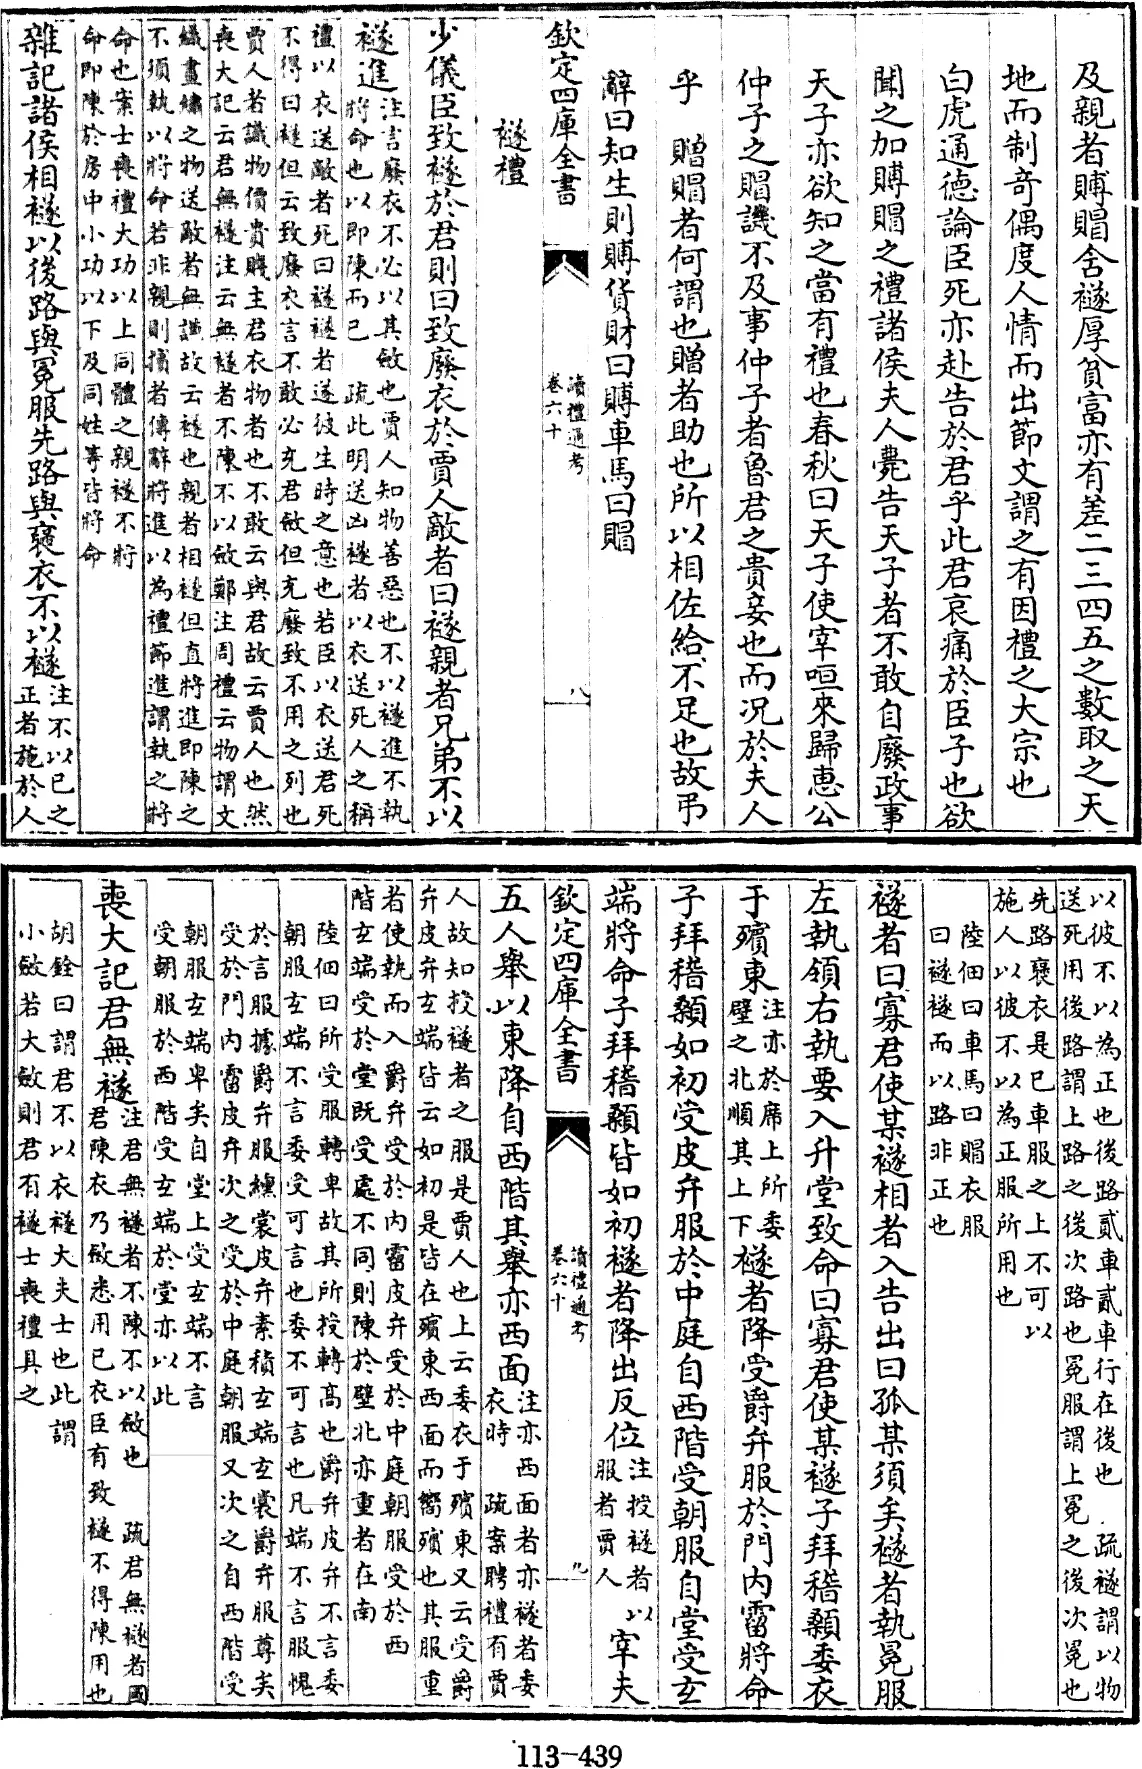 及親者賻賵含襚厚貧富亦有差二三四五之數取之天
地而制奇偶度人情而出節文謂之有因禮之大宗也
白虎通德論臣死亦赴告於君乎此君哀痛於臣子也欲
聞之加賻賵之禮諸侯夫人薨告天子者不敢自廢政事
天子亦欲知之當有禮也春秋曰天子使宰咺來歸惠公
仲子之賵譏不及事仲子者魯君之貴妾也而况於夫人
乎 贈賵者何謂也贈者助也所以相佐給不足也故弔
辭曰知生則賻貨財曰賻車馬曰賵
欽定四庫全書 讀禮通考 卷六十 八
襚禮
少儀臣致襚於君則曰致廢衣於賈人敵者曰襚親者兄弟不以
襚進注言廢衣不必以其斂也賈人知物善惡也不以襚進不執
將命也以即陳而已 疏此明送凶襚者以衣送死人之稱
禮以衣送敵者死曰襚襚者遂彼生時之意也若臣以衣送君死
不得曰襚但云致廢衣言不敢必充君斂但充廢致不用之列也
賈人者識物價貴賤主君衣物者也不敢云與君故云賈人也然
喪大記云君無襚注云無襚者不陳不以斂鄭注周禮云物謂文
織畫繡之物送敵者無謙故云襚也親者相襚但直將進即陳之
不須執以將命若非親則擯者傳辭將進以為禮節進謂執之將
命也案士喪禮大功以上同體之親襚不將
命即陳於房中小功以下及同姓等皆將命
雜記諸侯相襚以後路與冕服先路與襃衣不以襚注不以已之
正者施於人
以彼不以為正也後路貳車貳車行在後也 疏襚謂以物
送死用後路謂上路之後次路也冕服謂上冕之後次冕也
先路襃衣是已車服之上不可以
施人以彼不以為正服所用也
陸佃曰車馬曰賵衣服
曰襚襚而以路非正也
襚者曰寡君使某襚相者入告出曰孤某須矣襚者執冕服
左執領右執要入升堂致命曰寡君使某襚子拜稽顙委衣
于殯東注亦於席上所委
壁之北順其上下襚者降受爵弁服於門內霤將命
子拜稽顙如初受皮弁服於中庭自西階受朝服自堂受玄
端將命子拜稽顙皆如初襚者降出反位注授襚者以
服者賈人宰夫
欽定四庫全書 讀禮通考 卷六十 九
五人舉以東降自西階其舉亦西面注亦西面者亦襚者委
衣時 疏案聘禮有賈
人故知授襚者之服是賈人也上云委衣于殯東又云受爵
弁皮弁玄端皆云如初是皆在殯東西面而嚮殯也其服重
者使執而入爵弁受於內霤皮弁受於中庭朝服受於西
階玄端受於堂既受處不同則陳於壁北亦重者在南
陸佃曰所受服轉卑故其所授轉高也爵弁皮弁不言委
朝服玄端不言委受可言也委不可言也凡端不言服愧
於言服據爵弁服纁裳皮弁素積玄端玄裳爵弁服尊矣
受於門內霤皮弁次之受於中庭朝服又次之自西階受
朝服玄端卑矣自堂上受玄端不言
受朝服於西階受玄端於堂亦以此
喪大記君無襚注君無襚者不陳不以斂也 疏君無襚者國
君陳衣乃斂悉用已衣臣有致襚不得陳用也
胡銓曰謂君不以衣襚大夫士也此謂
小斂若大斂則君有襚士喪禮具之
113-439